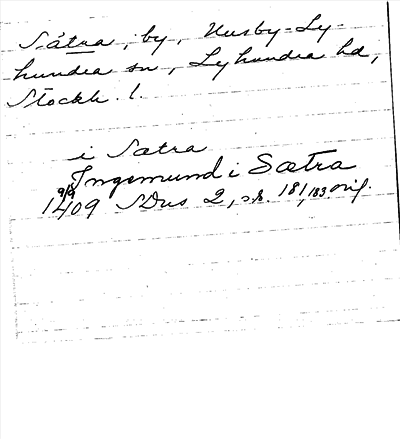 Sätra, by, Husby-Ly-
hundra sn, Lyhundra hd,
Stockh. l.
i Satra
Ingemund i Sætra
9/9
1409 SDns 2, s. 181, 183 orig.